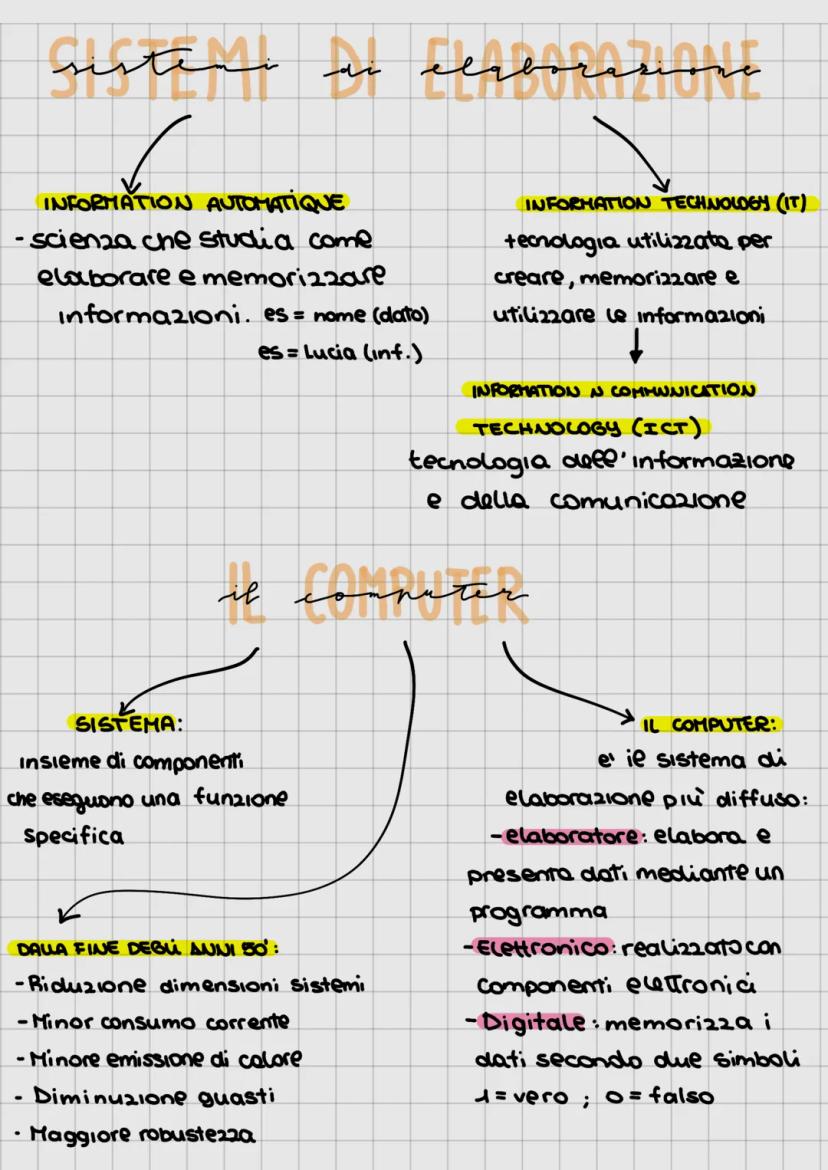 SISTEMI DI ELABORAZIONE
sistemi di elaborazione
INFORMATION AUTOMATIQUE
- scienza che studia come
elaborare e memorizzare
informazioni. es = nome (dato)
es = Lucia (inf.)
INFORMATION TECHNOLOGY (IT)
tecnologia utilizzata per
creare, memorizzare e
utilizzare le informazioni
INFORMATION N COMMUNICATION
TECHNOLOGY (ICT)
tecnologia dell'informazione
e della comunicazione
IL COMPUTER
il computer
SISTEMA:
insieme di componenti
che eseguono una funzione
specifica
DALLA FINE DEGLI ANNI 50':
- Riduzione dimensioni sistemi
- Minor consumo corrente
- Minore emissione di calore
- Diminuzione guasti
· Maggiore robustezza
IL COMPUTER:
e' il sistema di
elaborazione più diffuso:
- elaboratore: elabora e
presenta dati mediante un
programma
- Elettronico: realizzato con
componenti elettronici
- Digitale: memorizza i
dati secondo due simboli
1 = vero ; 0 = falso